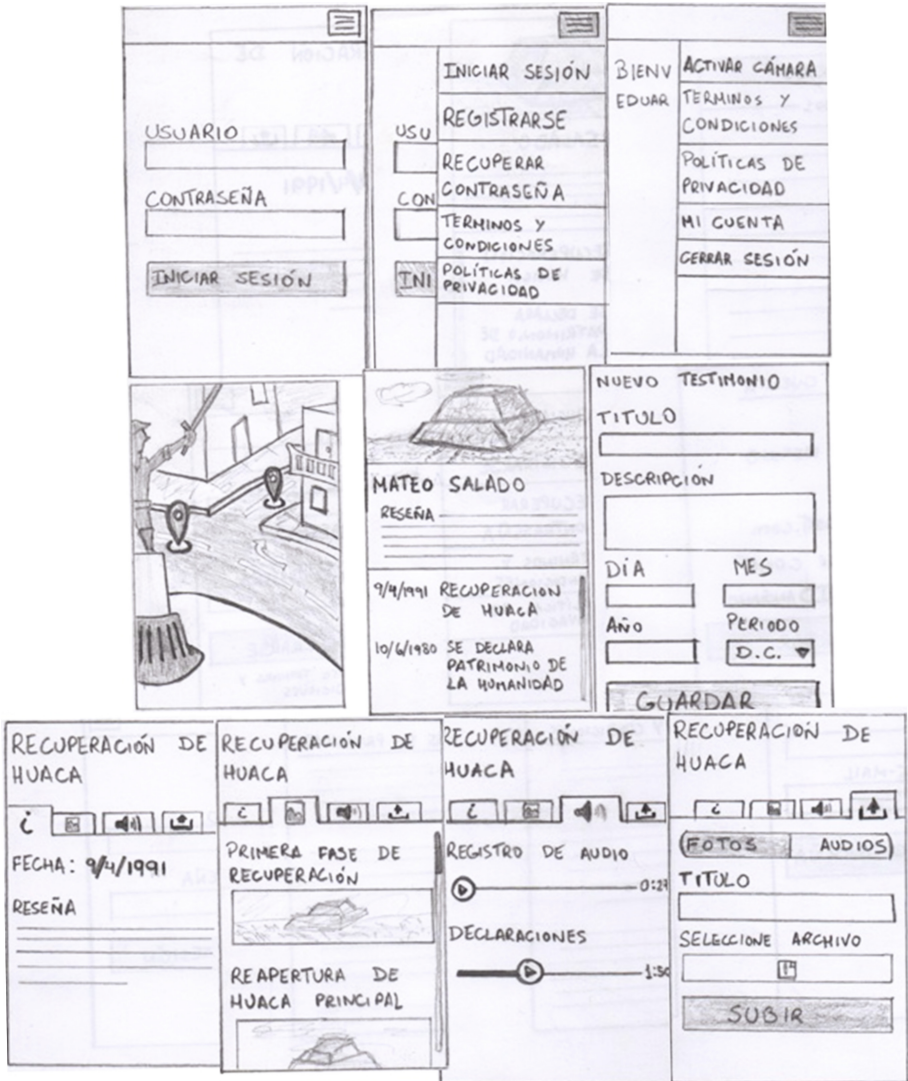 USUARIO
CONTRASEÑA
INICIAR SESIÓN
USU
CON
INI
INICIAR SESIÓN
REGISTRARSE
RECUPERAR
CONTRASEÑA
TERMINOS Y
CONDICIONES
POLÍTICAS DE
PRIVACIDAD
BIENV
EDUAR
ACTIVAR CÁMARA
TERMINOS Y
CONDICIONES
POLÍTICAS DE
PRIVACIDAD
MI CUENTA
CERRAR SESIÓN
MATEO SALADO
RESEÑA
9/4/1991 RECUPERACION
DE HUACA
10/6/1980 SE DECLARA
PATRIMONIO DE
LA HUMANIDAD
NUEVO TESTIMONIO
TITULO
DESCRIPCIÓN
DÍA MES
AÑO PERIODO
D.C.
GUARDAR
RECUPERACIÓN DE
HUACA
i
FECHA: 9/4/1991
RESEÑA
RECUPERACIÓN DE
HUACA
i
PRIMERA FASE DE
RECUPERACIÓN
REAPERTURA DE
HUACA PRINCIPAL
RECUPERACIÓN DE
HUACA
i
REGISTRO DE AUDIO
0:27
DECLARACIONES
1:50
RECUPERACIÓN DE
HUACA
i
FOTOS AUDIOS
TITULO
SELECCIONE ARCHIVO
SUBIR